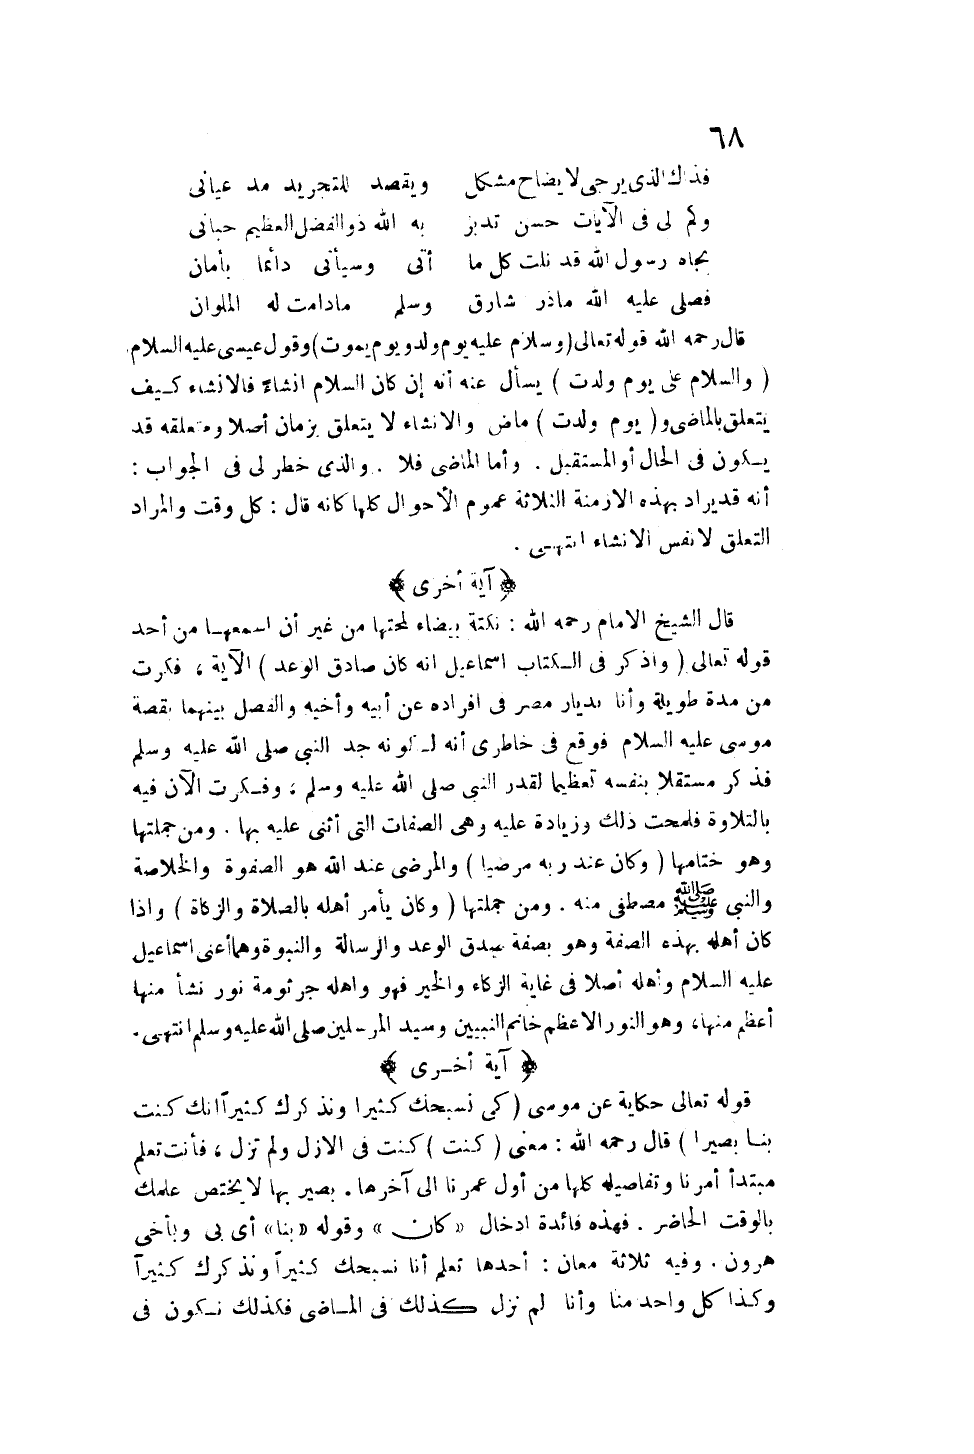 ٦٨
فذاك الذى يرجى لايضاح مشكل ويقصد للتجريد مد عيانى
وكم لى فى الآيات حسن تدبر به الله ذو الفضل العظيم حبانى
بجاه رسول الله قد نلت كل ما أتى وسيأتى دائما بأمان
فصلى عليه الله ماذر شارق وسلم مادامت له الملوان
قال رحمه الله قوله تعالى (وسلام عليه يوم ولد ويوم يموت) وقول عيسى عليه السلام
( والسلام على يوم ولدت ) يسأل عنه أنه إن كان السلام انشاءً فالانشاء كيف
يتعلق بالماضى و( يوم ولدت ) ماض والانشاء لا يتعلق بزمان أصلا ومتعلقه قد
يكون فى الحال أو المستقبل . وأما الماضى فلا . والذى خطر لى فى الجواب :
أنه قد يراد بهذه الازمنة الثلاثة عموم الأحوال كلها كانه قال : كل وقت والمراد
التعلق لا نفس الانشاء انتهى .
﴿ آية أخرى ﴾
قال الشيخ الامام رحمه الله : نكتة بيضاء لمحتها من غير أن اسمعها من أحد
قوله تعالى ( واذكر فى الكتاب اسماعيل انه كان صادق الوعد ) الآية ، فكرت
من مدة طويلة وأنا بديار مصر فى افراده عن أبيه وأخيه والفصل بينهما بقصة
موسى عليه السلام فوقع فى خاطرى أنه لكونه جد النبى صلى الله عليه وسلم
فذكر مستقلا بنفسه تعظيما لقدر النبى صلى الله عليه وسلم ، وفكرت الآن فيه
بالتلاوة فلمحت ذلك وزيادة عليه وهى الصفات التى أثنى عليه بها . ومن جملتها
وهو ختامها ( وكان عند ربه مرضيا ) والمرضى عند الله هو الصفوة والخلاصة
والنبى ﷺ مصطفى منه . ومن جملتها ( وكان يأمر أهله بالصلاة والزكاة ) واذا
كان أهله بهذه الصفة وهو بصفة صدق الوعد والرسالة والنبوة وهما أعنى اسماعيل
عليه السلام وأهله أصلا فى غاية الزكاء والخير فهو واهله جرثومة نور نشأ منها
أعظم منها، وهو النور الاعظم خاتم النبيين وسيد المرسلين صلى الله عليه وسلم انتهى.
﴿ آية أخرى ﴾
قوله تعالى حكاية عن موسى ( كى نسبحك كثيرا ونذكرك كثيراً انك كنت
بنا بصيرا ) قال رحمه الله : معنى ( كنت ) كنت فى الازل ولم تزل ، فأنت تعلم
مبتدأ أمرنا وتفاصيله كلها من أول عمرنا الى آخرها . بصير بها لا يختص علمك
بالوقت الحاضر . فهذه فائدة ادخال «كان» وقوله «بنا» أى بى وبأخى
هرون . وفيه ثلاثة معان : أحدها تعلم أنا نسبحك كثيراً ونذكرك كثيراً
وكذا كل واحد منا وأنا لم نزل كذلك فى الماضى فكذلك نكون فى